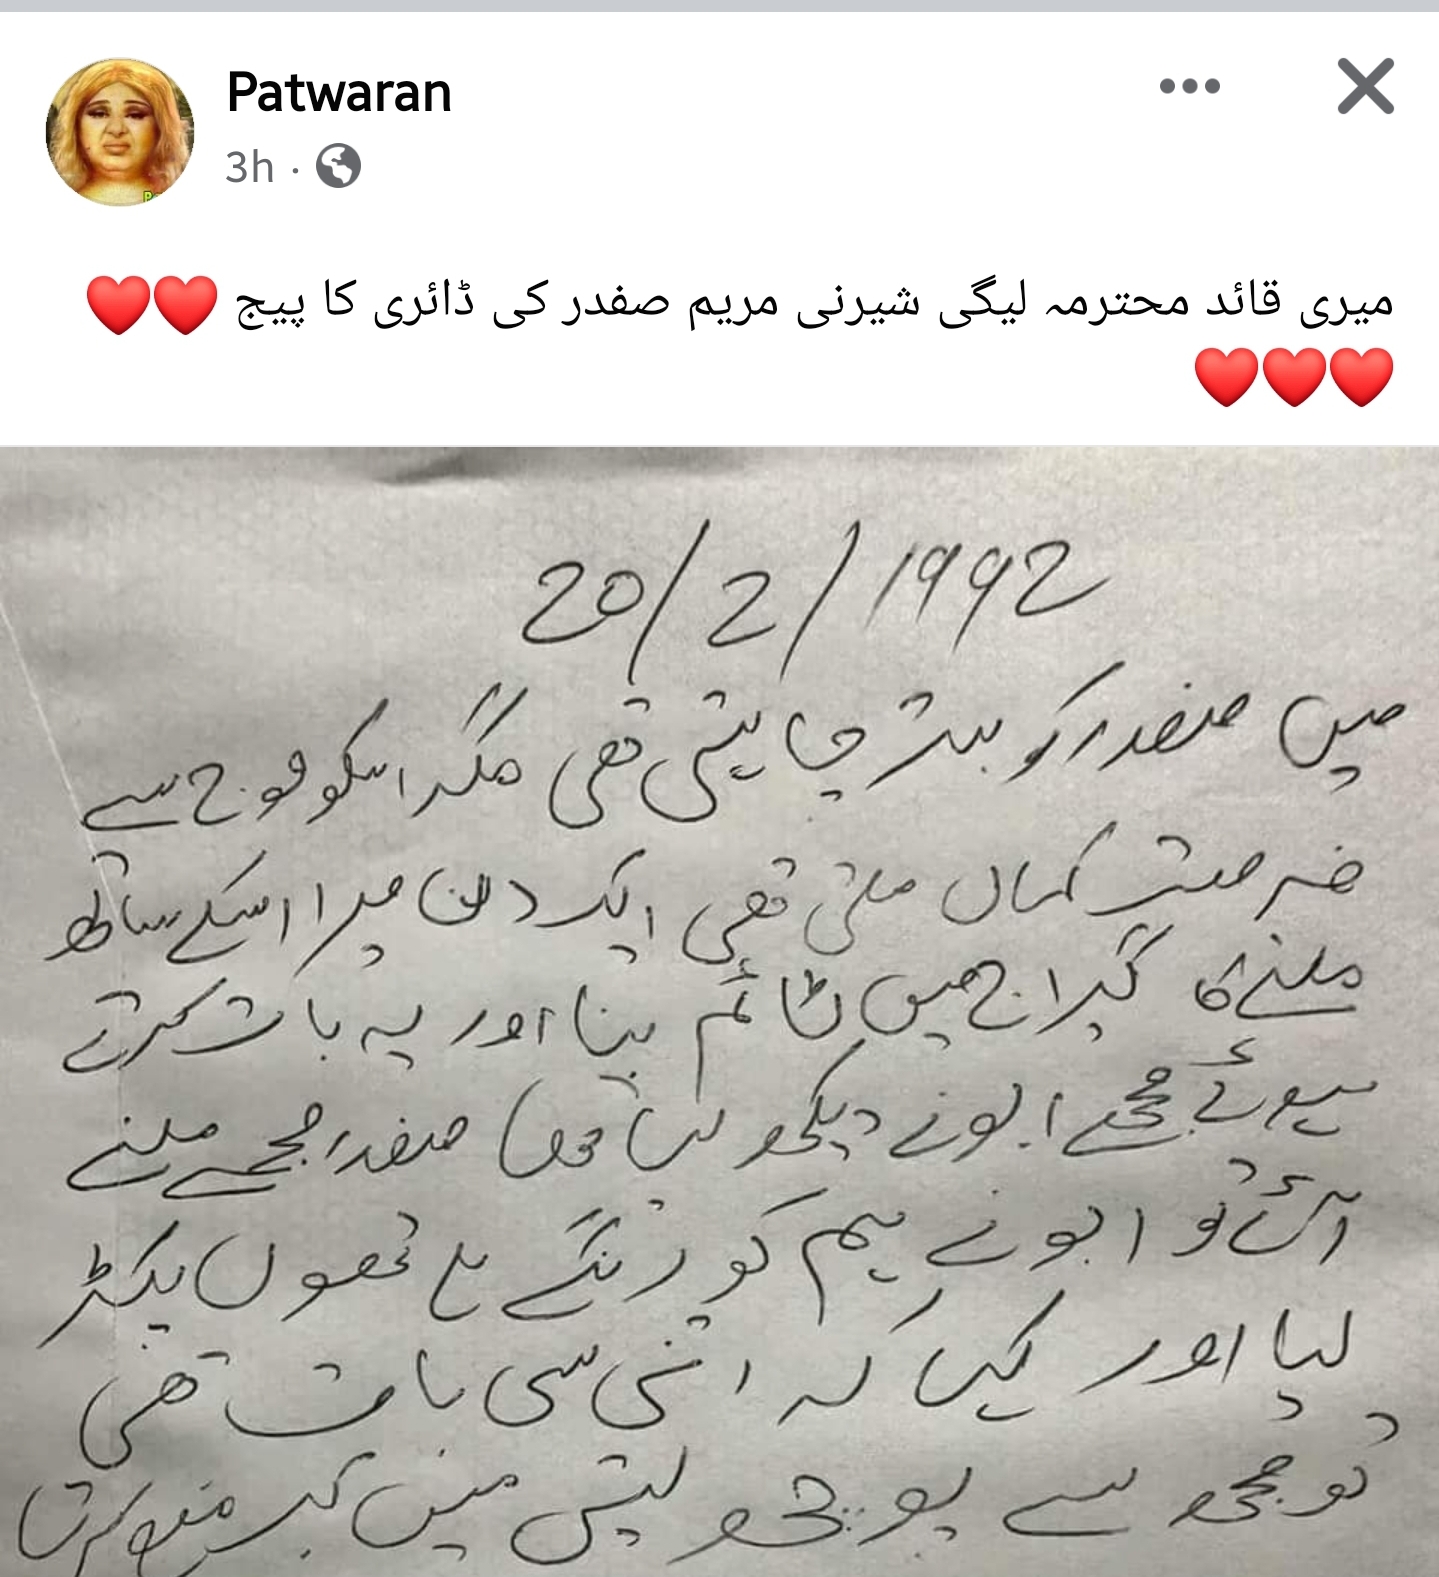 Patwaran
3h
میری قائد محترمہ لیگی شیرنی مریم صفدر کی ڈائری کا پیج ❤️❤️
❤️❤️❤️
20/2/1992
میں صفدر کو بہت چاہتی تھی مگر اسکو فوج سے
فرصت کہاں ملتی تھی ایک دن میرا اسکے ساتھ
ملنے کا گیراج میں ٹائم بنا اور یہ بات کرتے
ہوئے مجھے ابو نے دیکھ لیا صفدر مجھے ملنے
آئے تو ابو نے ہم کو رنگے ہاتھوں پکڑ
لیا اور کہا کہ اتنی سی بات تھی
تو مجھ سے پوچھ لیتی میں کب منع کرتا